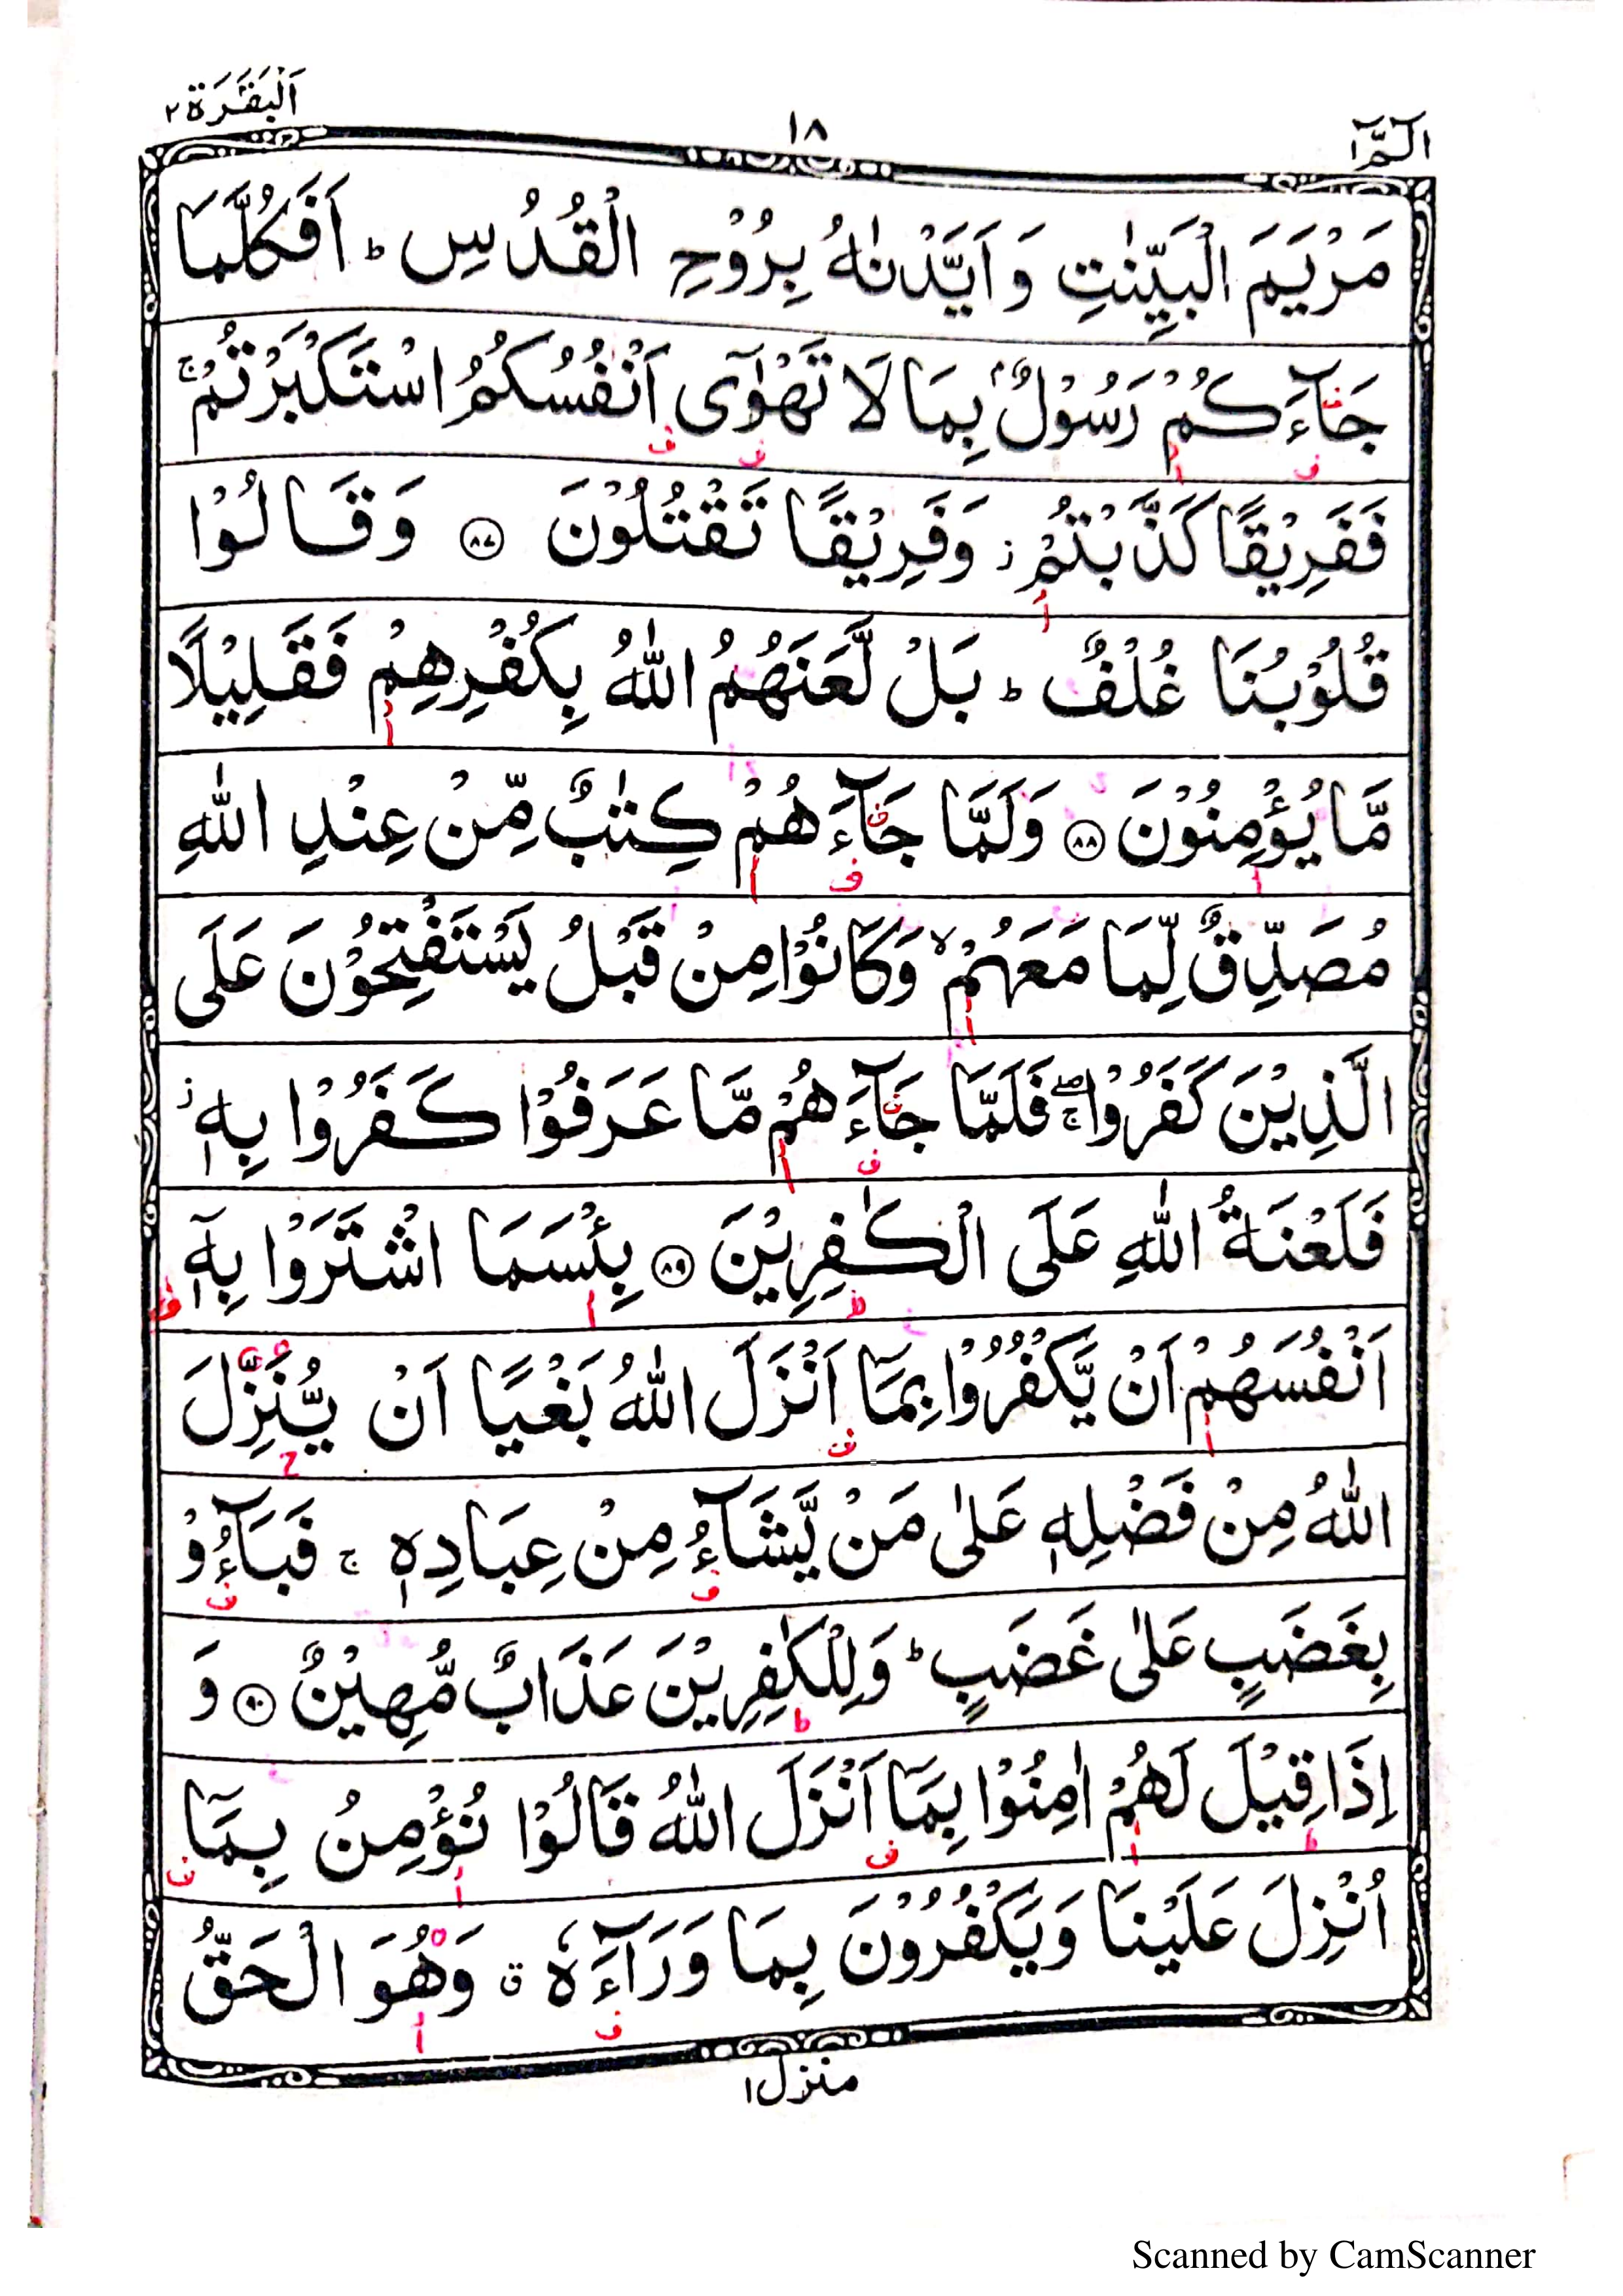 الٓمّٓ ١
١٨
اَلْبَقَرَة ٢
مَرْيَمَ الْبَيِّنٰتِ وَ اَيَّدْنٰهُ بِرُوْحِ الْقُدُسِ ؕ اَفَكُلَّمَا
جَآءَكُمْ رَسُوْلٌۢ بِمَا لَا تَهْوٰٓى اَنْفُسُكُمُ اسْتَكْبَرْتُمْ ۚ
فَفَرِيْقًا كَذَّبْتُمْ ؗ وَفَرِيْقًا تَقْتُلُوْنَ ﴿٨٧﴾ وَقَالُوْا
قُلُوْبُنَا غُلْفٌ ؕ بَلْ لَّعَنَهُمُ اللّٰهُ بِكُفْرِهِمْ فَقَلِيْلًا
مَّا يُؤْمِنُوْنَ ﴿٨٨﴾ وَلَمَّا جَآءَهُمْ كِتٰبٌ مِّنْ عِنْدِ اللّٰهِ
مُصَدِّقٌ لِّمَا مَعَهُمْ ۙ وَكَانُوْا مِنْ قَبْلُ يَسْتَفْتِحُوْنَ عَلَى
الَّذِيْنَ كَفَرُوْا ۖۚ فَلَمَّا جَآءَهُمْ مَّا عَرَفُوْا كَفَرُوْا بِهٖ ؗ
فَلَعْنَةُ اللّٰهِ عَلَى الْكٰفِرِيْنَ ﴿٨٩﴾ بِئْسَمَا اشْتَرَوْا بِهٖٓ
اَنْفُسَهُمْ اَنْ يَّكْفُرُوْا بِمَآ اَنْزَلَ اللّٰهُ بَغْيًا اَنْ يُّنَزِّلَ
اللّٰهُ مِنْ فَضْلِهٖ عَلٰى مَنْ يَّشَآءُ مِنْ عِبَادِهٖ ۚ فَبَآءُوْ
بِغَضَبٍ عَلٰى غَضَبٍ ؕ وَلِلْكٰفِرِيْنَ عَذَابٌ مُّهِيْنٌ ﴿٩٠﴾ وَ
اِذَا قِيْلَ لَهُمْ اٰمِنُوْا بِمَآ اَنْزَلَ اللّٰهُ قَالُوْا نُؤْمِنُ بِمَآ
اُنْزِلَ عَلَيْنَا وَيَكْفُرُوْنَ بِمَا وَرَآءَهٗ ۗ وَهُوَ الْحَقُّ
منزل ١
Scanned by CamScanner